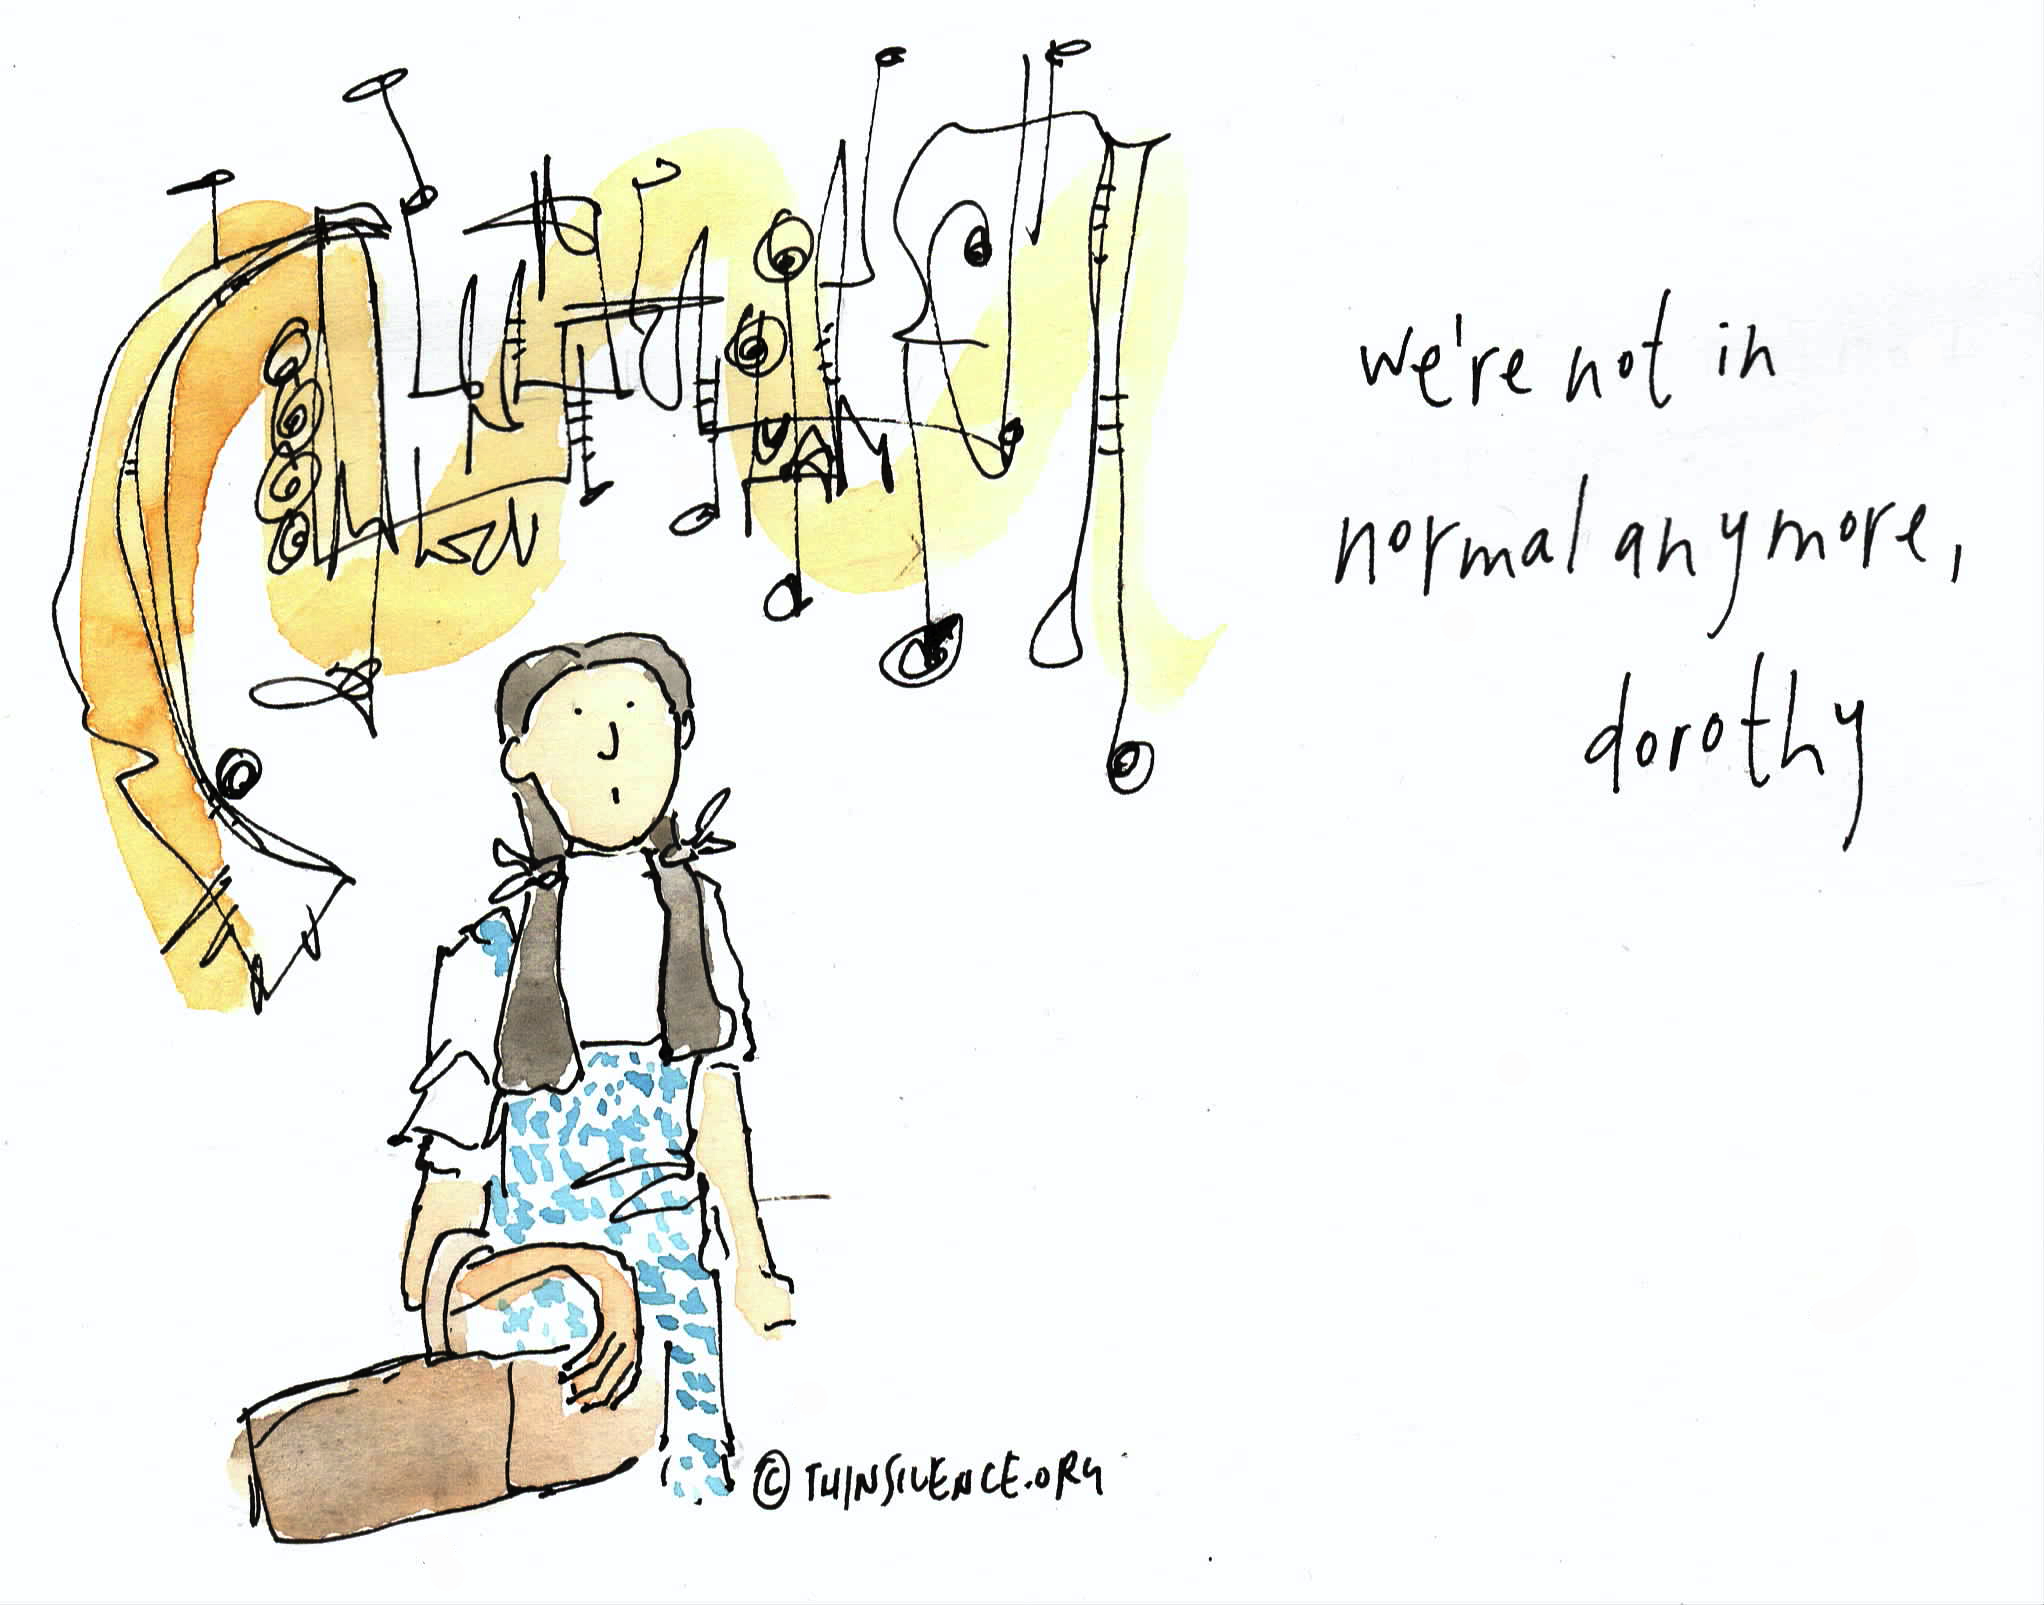 we're not in
normal anymore,
dorothy
© THINSILENCE.ORG